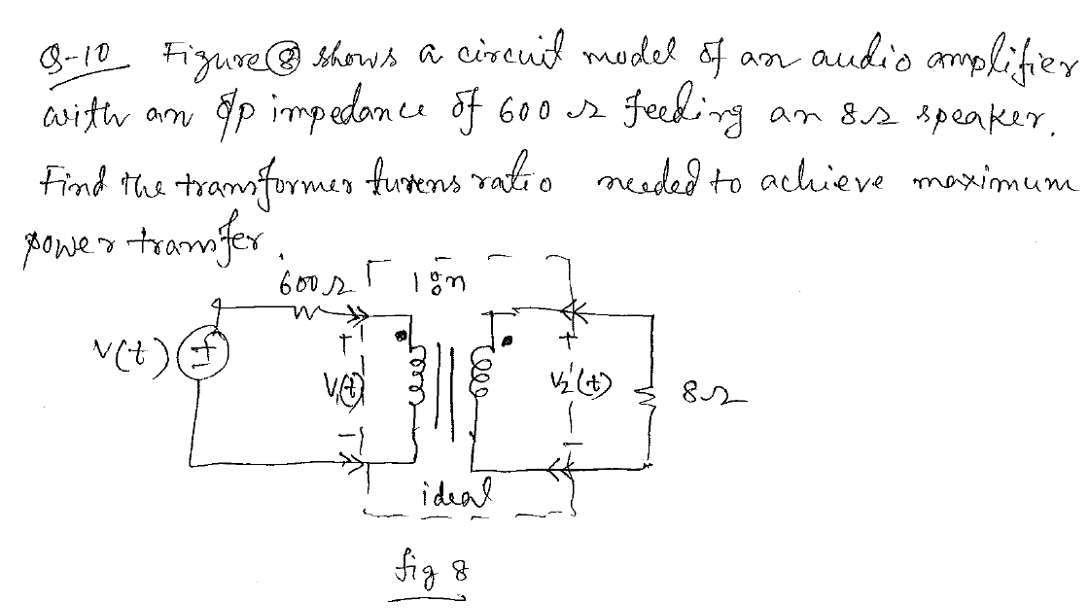 Q-10 Figure ⑧ shows a circuit model of an audio amplifier
with an o/p impedance of 600 Ω feeding an 8Ω speaker.
Find the transformer turens ratio needed to achieve maximum
power transfer.
600Ω 1:n
V(t) + - + V₁(t) - + V₂(t) - 8Ω
ideal
fig 8